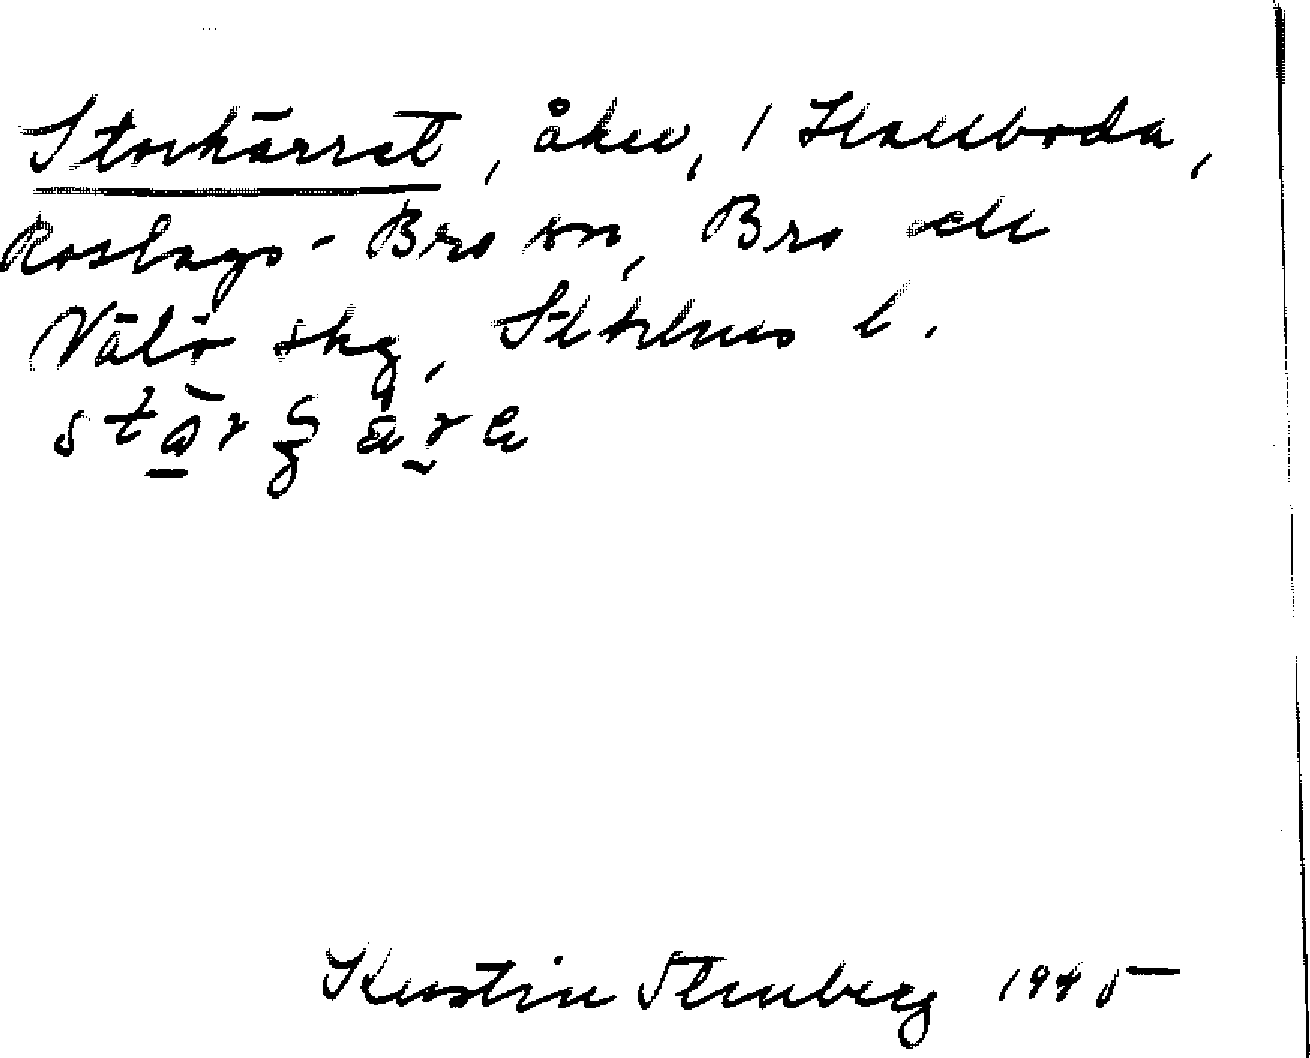 Storkärret, åker, 1 Hallboda,
Roslags-Bro sn, Bro och
Välö skg, Sthlms l.
Kerstin Stenberg 1945